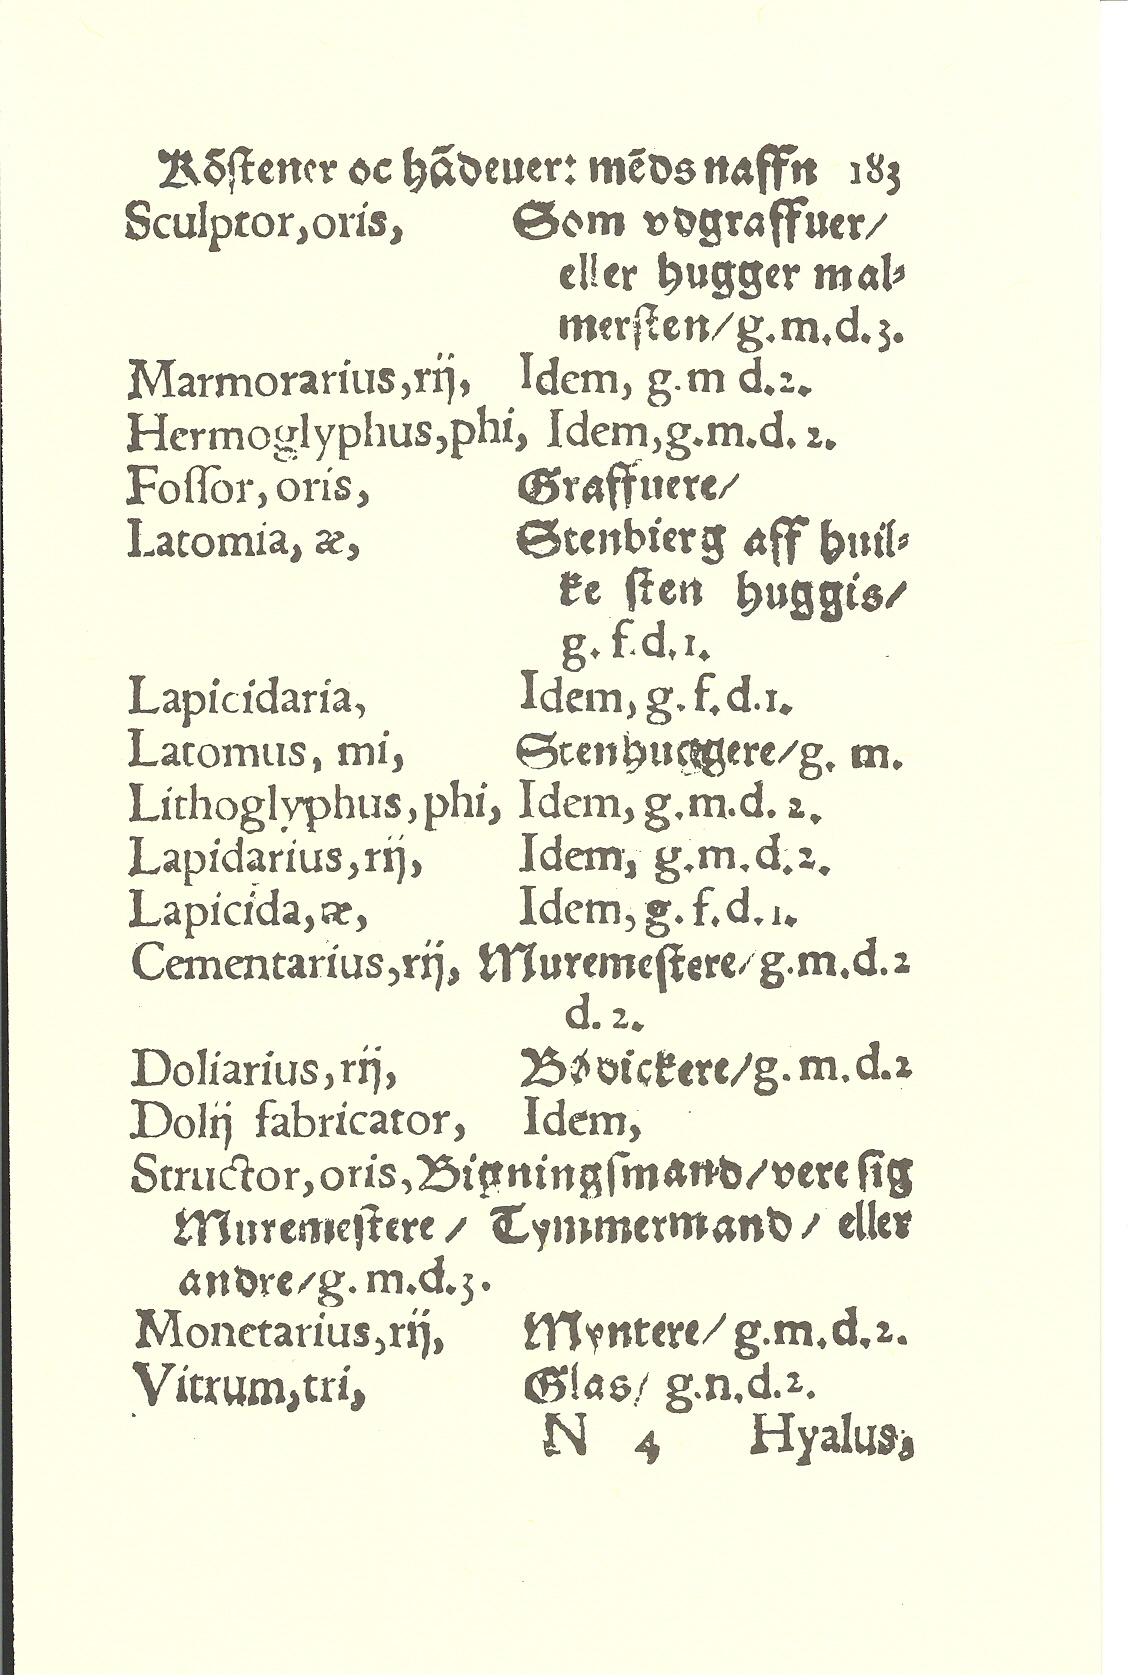 Kõstener oc hãdeuer: mẽds naffn 183
Sculptor, oris, Som vdgraffuer/
eller hugger mal⸗
mersten/ g.m.d.3.
Marmorarius, rij, Idem, g.m d.2.
Hermoglyphus, phi, Idem, g.m.d. 2.
Fossor, oris, Graffuere/
Latomia, æ, Stenbierg aff huil⸗
ke sten huggis/
g. f.d.1.
Lapicidaria, Idem, g. f. d.1.
Latomus, mi, Stenhuggere/ g. m.
Lithoglyphus, phi, Idem, g.m.d. 2.
Lapidarius, rij, Idem, g.m.d.2.
Lapicida, æ, Idem, g. f. d.1.
Cementarius, rij, Muremestere/ g.m.d.2
d. 2.
Doliarius, rij, Bødickere/ g. m. d.2
Dolij fabricator, Idem,
Structor, oris, Bigningsmand/ vere sig
Muremestere/ Tymmermand/ eller
andre/ g. m.d.3.
Monetarius, rij, Myntere/ g.m.d.2.
Vitrum, tri, Glas/ g.n.d.2.
N 4 Hyalus,